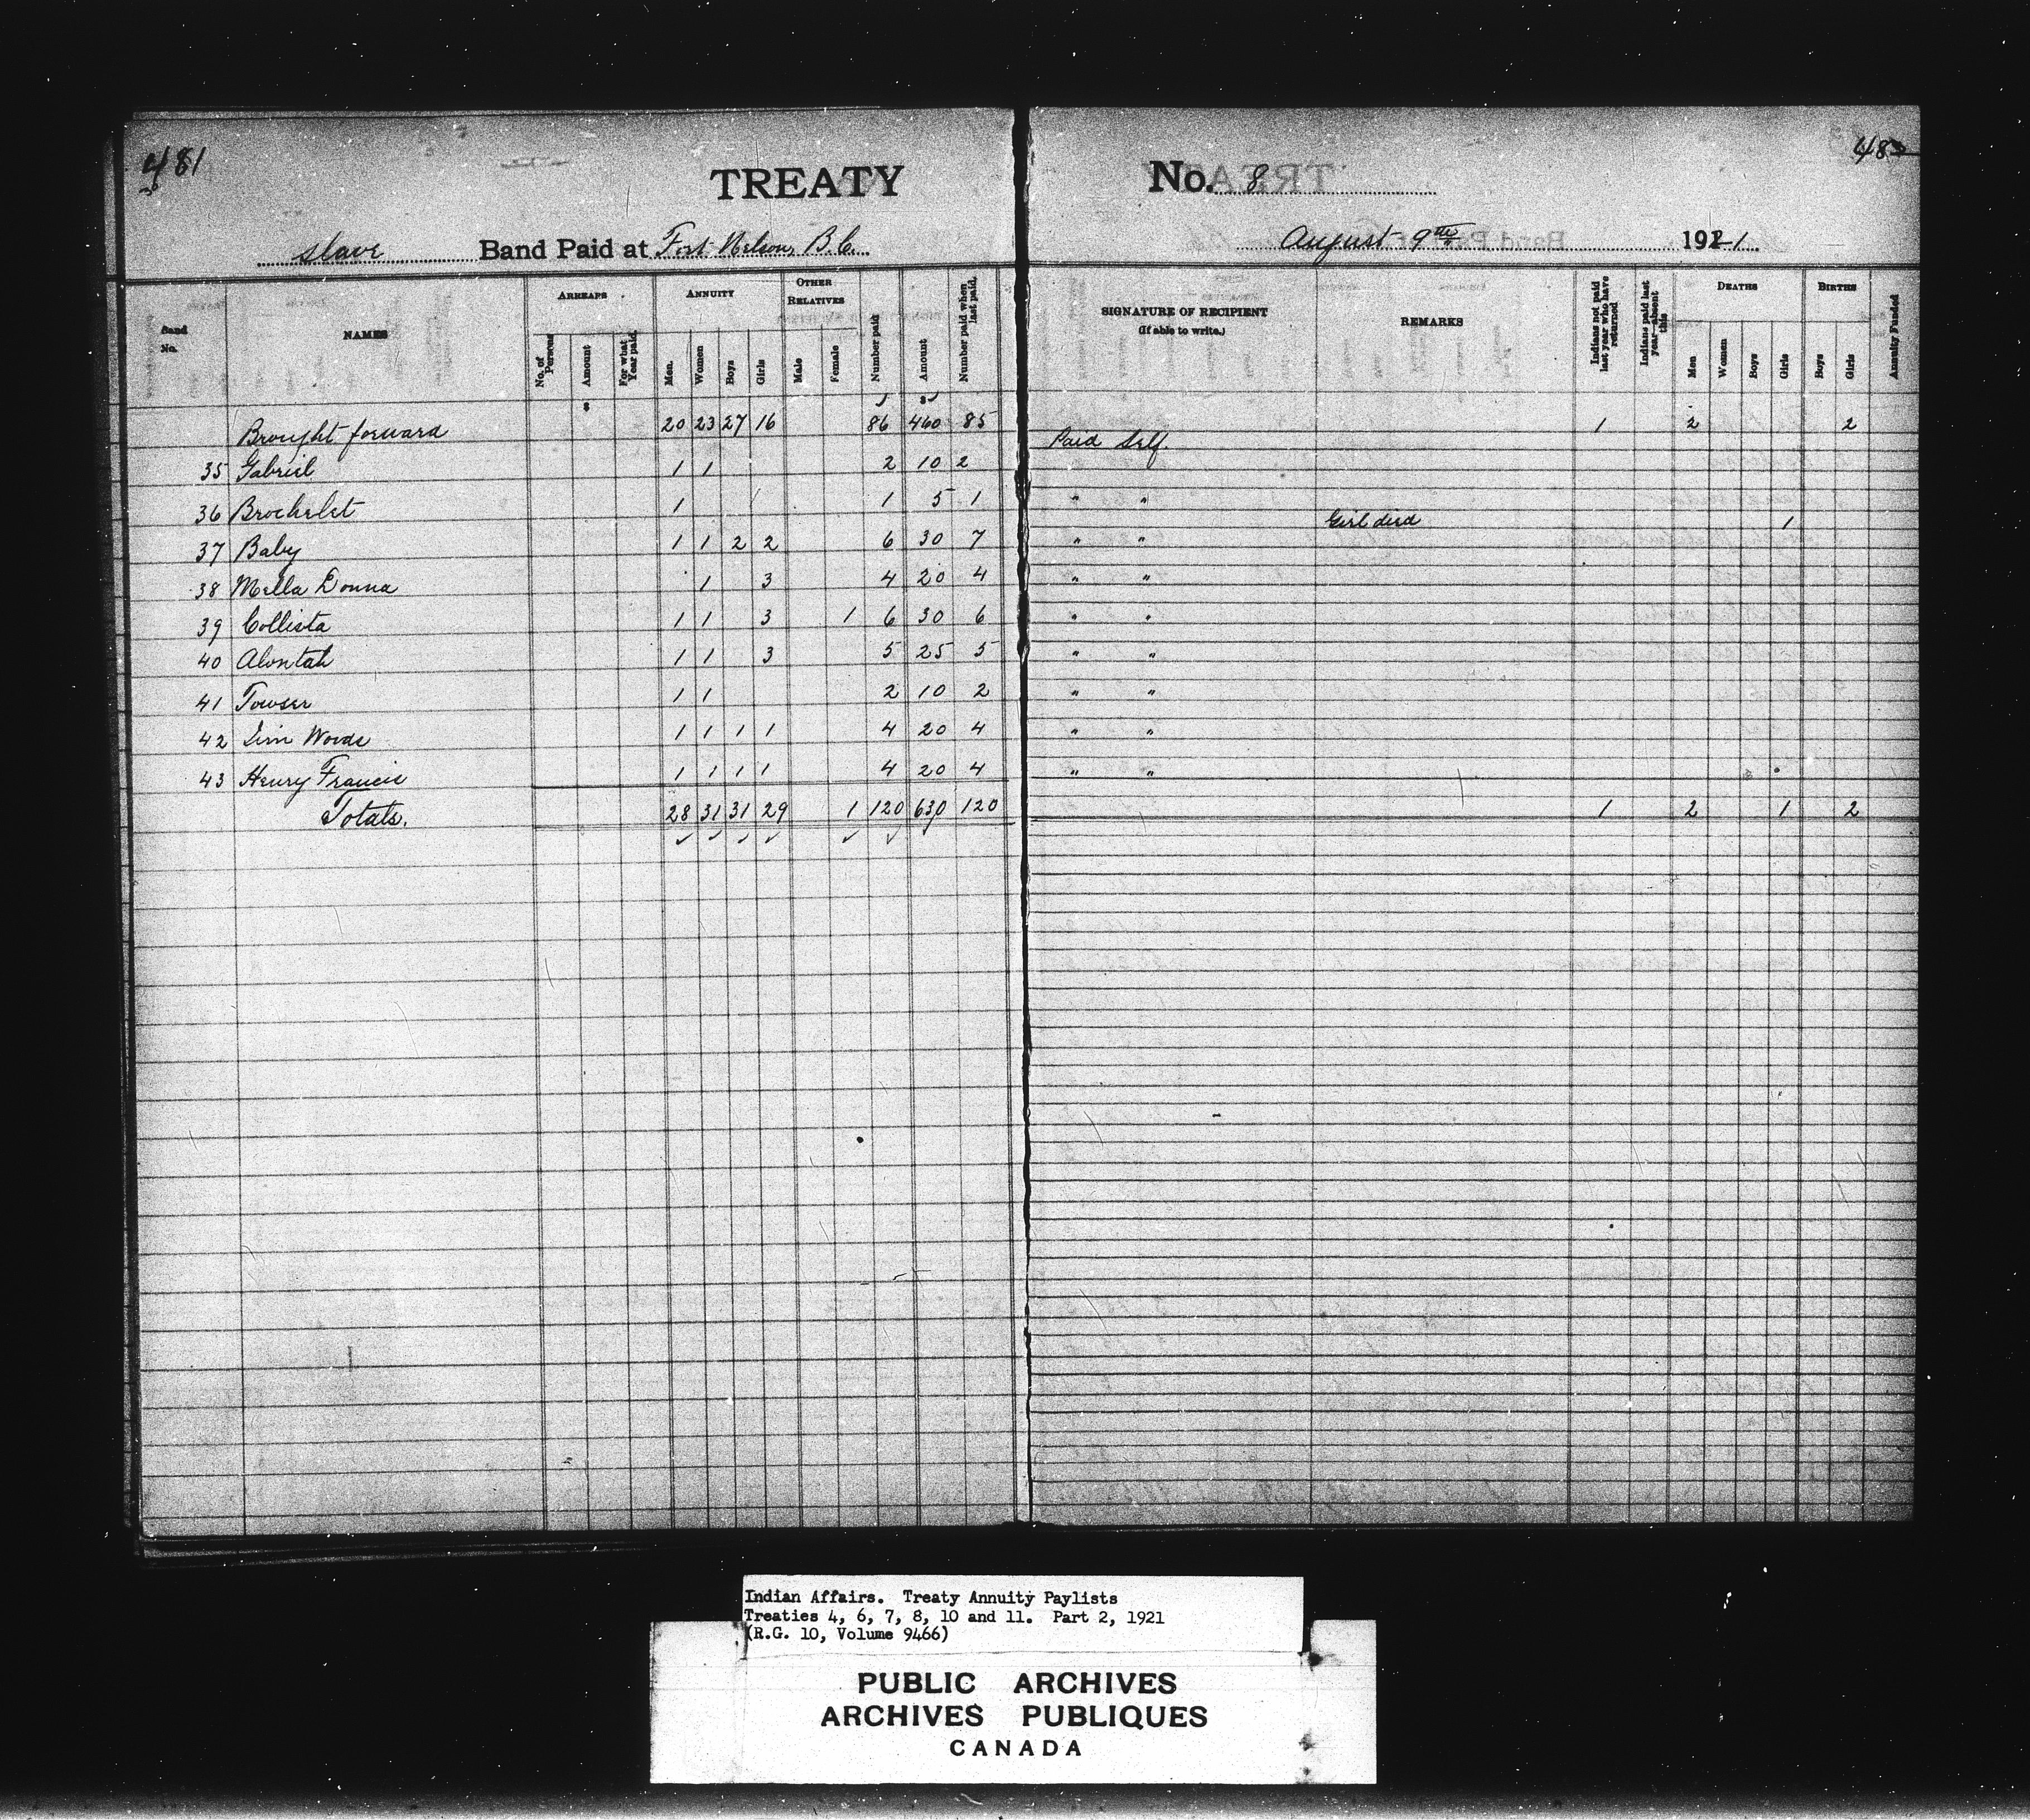 481
TREATY No. 8
483
Slave Band Paid at Fort Nelson, B.C. August 9th 1921
Band No.
NAMES
ARREARS
No. of Persons
Amount
For what Year paid
ANNUITY
Men.
Women
Boys
Girls
OTHER RELATIVES
Male
Female
Number paid
Amount
Number paid when last paid.
SIGNATURE OF RECIPIENT
(If able to write.)
REMARKS
Indians not paid last year who have returned
Indians paid last year—absent this
DEATHS
Men
Women
Boys
Girls
BIRTHS
Boys
Girls
Annuity Funded
$ $
Brought forward 20 23 27 16 86 460 85 1 2 2
35 Gabriel 1 1 2 10 2 Paid Self.
36 Brochelet 1 1 5 1 " "
37 Baby 1 1 2 2 6 30 7 " " Girl died 1
38 Mella Donna 1 3 4 20 4 " "
39 Collista 1 1 3 1 6 30 6 " "
40 Alontah 1 1 3 5 25 5 " "
41 Towser 1 1 2 10 2 " "
42 Jim Woods 1 1 1 1 4 20 4 " "
43 Henry Francis 1 1 1 1 4 20 4 " "
Totals. 28 31 31 29 1 120 630 120 1 2 1 2
Indian Affairs. Treaty Annuity Paylists
Treaties 4, 6, 7, 8, 10 and 11. Part 2, 1921
(R.G. 10, Volume 9466)
PUBLIC ARCHIVES
ARCHIVES PUBLIQUES
CANADA